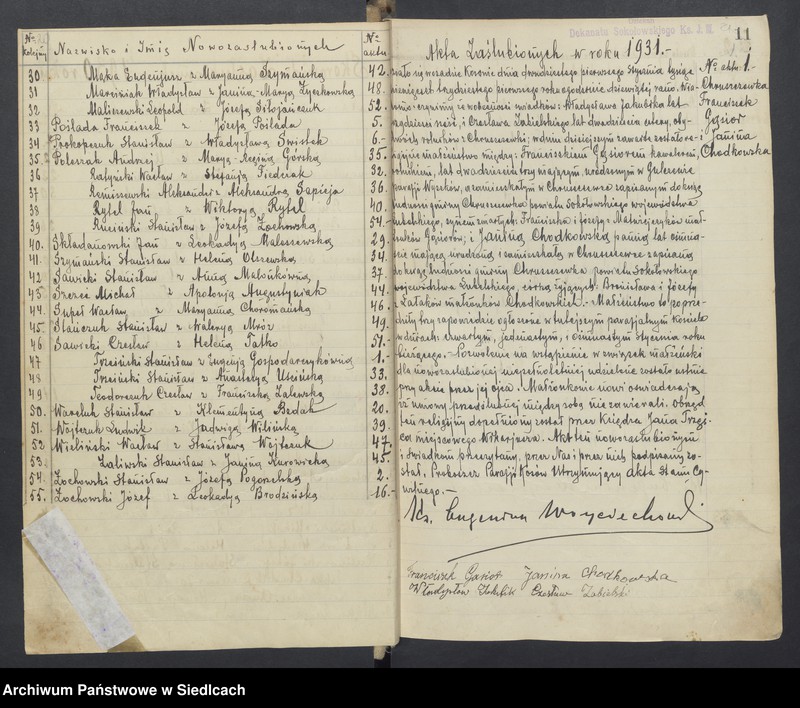 № kolejny Nazwiska i Imię Nowozaślubionych № aktu
30 Mąka Eugenjusz z Maryanną Szymańską 42.
31 Marciniak Władysław z Janiną-Maryą Zyschowską 48.
32 Maliszewski Leopold z Józefą 52.
33 Poślada Franciszek z Józefą Poślada 5.
34 Prokopczuk Stanisław z Władysławą Świstek 6.
35 Peleszak Andrzej z Marya-Reginą Górską 35.
36 Ratyński Wacław z Stefanją Fiedczak 32.
37 Remiszewski Aleksander z Aleksandrą Sapieja 36
38 Rytel Jan z Wiktoryą Rytel 40.
39 Ruciński Stanisław z Józefą Żochowską 54.
40. Składanowski Jan z Leokadyą Maleszewską 29.
41. Szymański Stanisław z Heleną Olszewską 34.
42 Sawicki Stanisław z Anną Małkówną 37.
43. Szerei Michał z Apolonją Augustyniak 44.
44. Supeł Wacław z Maryanną Choromańską 46.
45. Stańczuk Stanisław z Waleryą Mróz 49.
46. Sawicki Czesław z Heleną Tatko 51.
47 Trzciński Stanisław z Eugenją Gospodarczykówną 1.
48 Trzciński Stanisław z Anastazyą Uścińską 33.
49 Teodorczuk Czesław z Franciszką Zalewską 38.
50. Waweluk Stanisław z Klementyną Bedak 20.
51. Wojtczuk Ludwik z Jadwigą Wilińską 39.
52 Wieliński Wacław z Stanisławą Wojtczuk 47.
53. Zaliwski Stanisław z Janiną Kurowicką 45.
54. Żochowski Stanisław z Józefą Pogorzelską 2.
55. Żochowski Józef z Leokadyą Brodzińską 16.
Dekanatu Sokołowskiego
11
Akta Zaślubionych w roku 1931.-
№ aktu 1.
Chruszczewka
Franciszek
Gąsior
i Janina
Chodkowska
Działo się we wsi Kosowie dnia dwudziestego pierwszego Stycznia tysiąc
dziewięćset trzydziestego pierwszego roku o godzinie dziewiątej rano. Wia-
domo czynimy że w obecności świadków: Władysława Jakubika lat
trzydzieści sześć, i Czesława Zabielskiego lat dwadzieścia cztery, oby-
dwóch rolników z Chruszczewki; w dniu dzisiejszym zawarte zostało re-
ligijne małżeństwo między: Franciszkiem Gąsiorem kawalerem,
rolnikiem, lat dwadzieścia trzy mającym, urodzonym w Guleczcie
parafji Wyszków, a zamieszkałym w Chruszczewce zapisanym do ksiąg
ludności gminy Chruszczewka powiatu Sokołowskiego województwa
Lubelskiego, synem zmarłych: Franciszka i Józefy z Matusiejczyków mał-
żonków Gąsiorów; i Janiną Chodkowską panną lat ośmna-
ście mającą, urodzoną i zamieszkałą w Chruszczewce zapisaną
do ksiąg ludności gminy Chruszczewka powiatu Sokołowskiego
województwa Lubelskiego, córką żyjących: Bronisława i Józefy
z Zataków małżonków Chodkowskich.- Małżeństwo to poprze-
dziły trzy zapowiedzie ogłoszone w tutejszym parafjalnym Kościele
w dniach: czwartym, jedenastym, i ośmnastym stycznia roku
bieżącego.- Pozwolenie na wstąpienie w związek małżeński
dla nowozaślubionej niepełnoletniej udzielone zostało ustnie
przy akcie przez jej ojca. Małżonkowie nowi oświadczają
iż umowy przedślubnej między sobą nie zawierali. Obrzęd
ten religijny dopełniony został przez Księdza Jana Trze-
miejscowego Wikarjusza. Akt ten nowozaślubionym
i świadkom przeczytany, przez Nas i przez nich podpisany zo-
stał. Proboszcz Parafji Kosów Utrzymujący Akta Stanu Cy-
wilnego.-
Ks. Eugeniusz Woyciechowski
Franciszek Gąsior Janina Chodkowska
Władysław Jakubik Czesław Zabielski
Archiwum Państwowe w Siedlcach